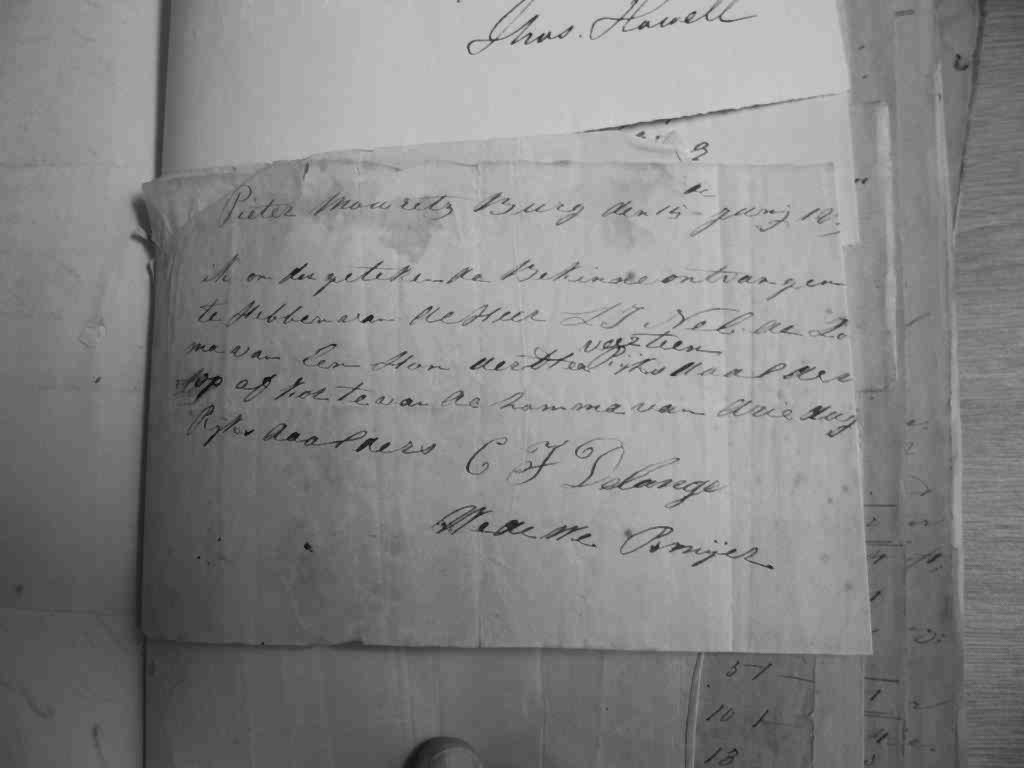 Thos. Howell
3
Pieter Mouretz Burg den 15 Junij 18
ik on der getekende Bekinde ontvangen
te Hebben van de Heer L J Nel. de Zo
ma van Een Hon dert veertien Rijks daal der
op af kor te van de somma van drie duy
Rijks daalders C F Delange
Wedewe Bmijer
51
10 1
18